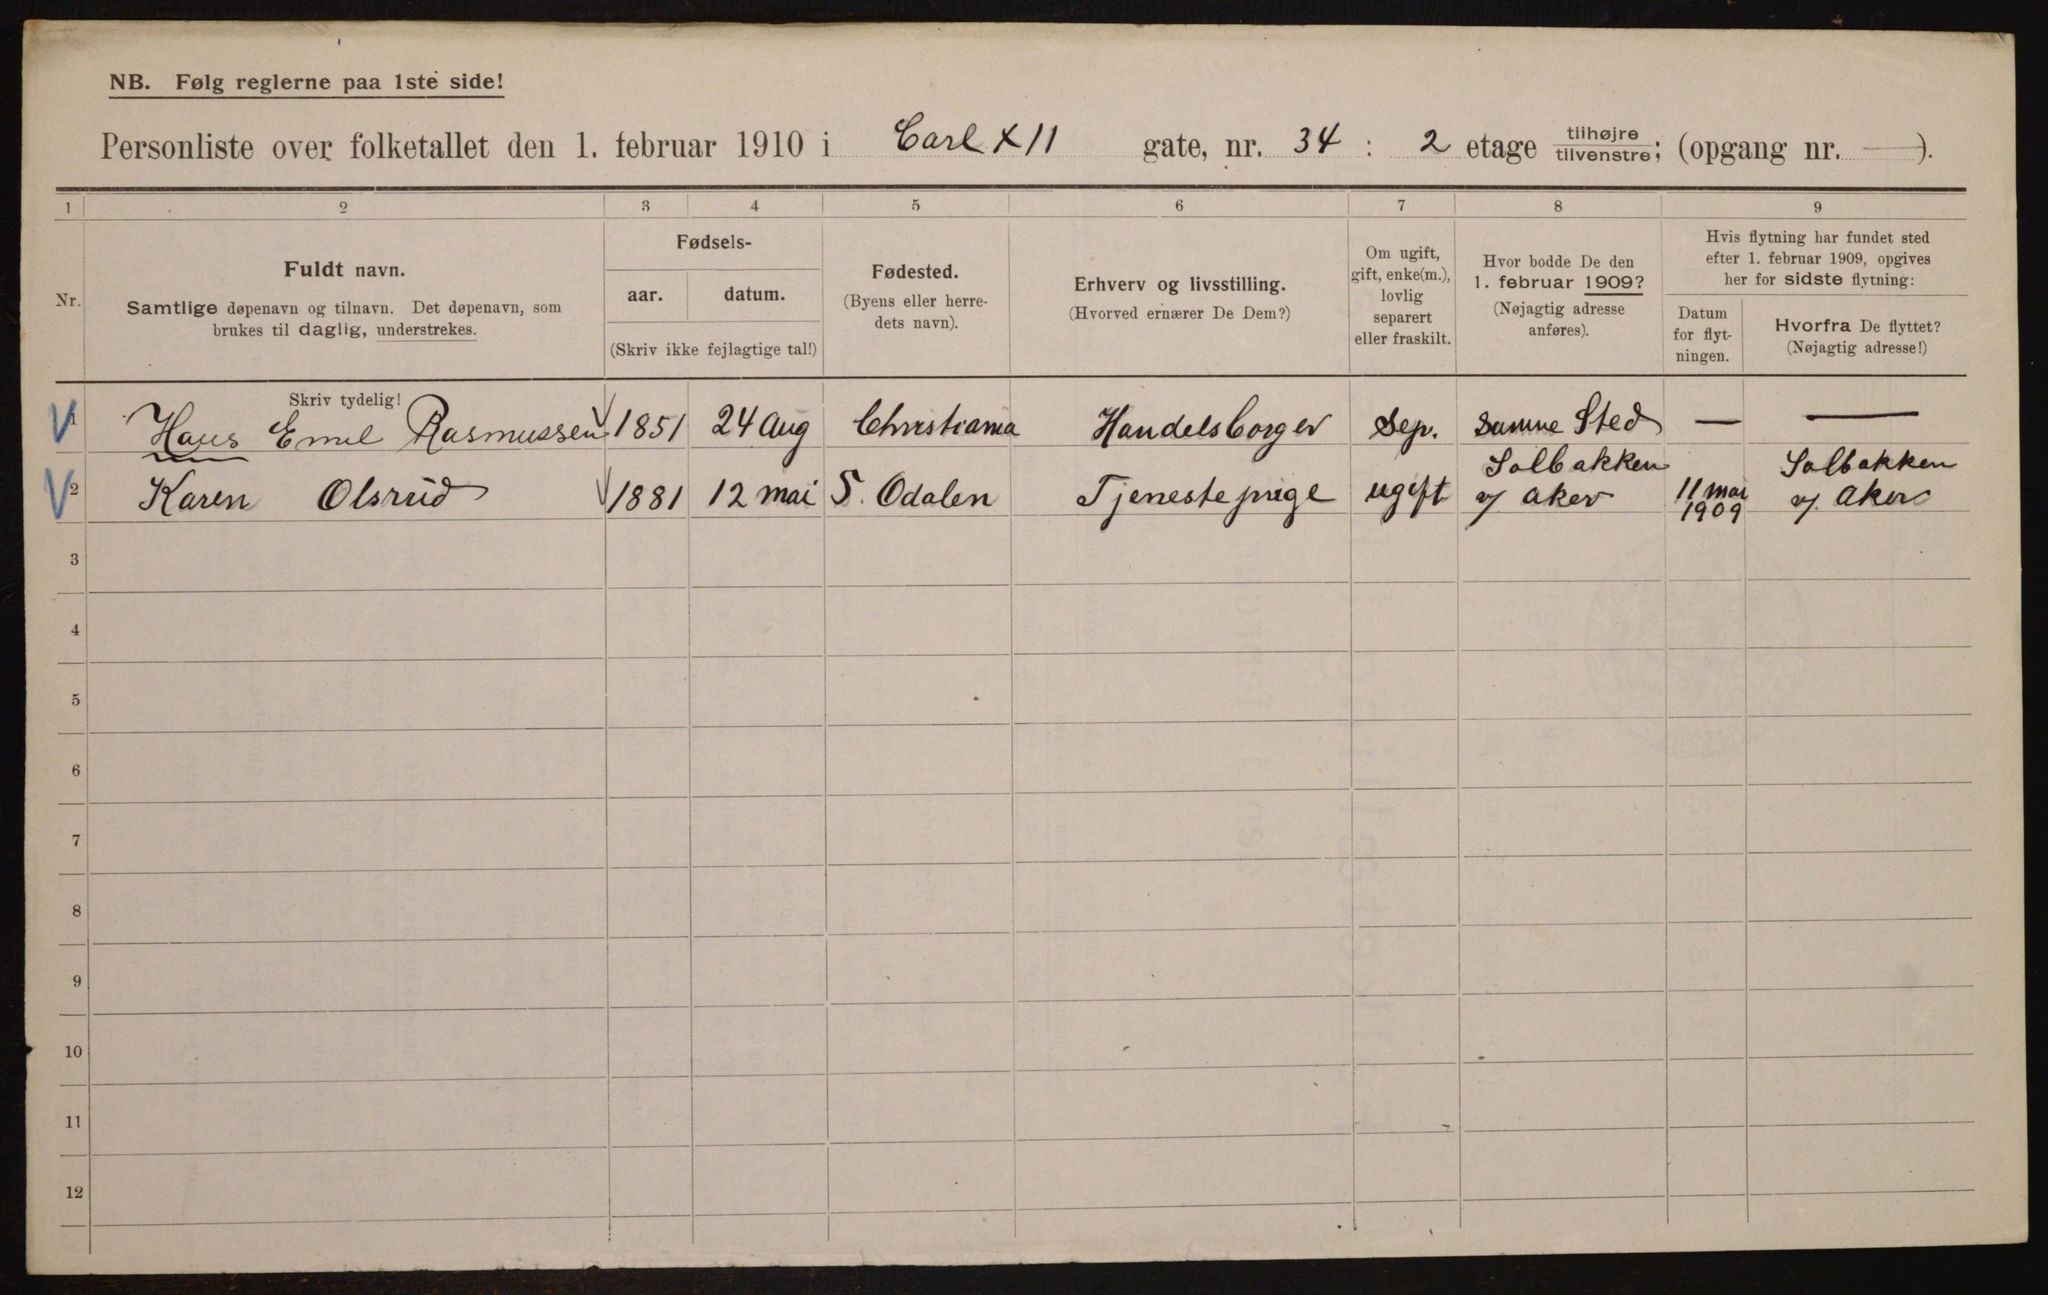 NB. Følg reglerne paa 1ste side!
Personliste over folketallet den 1. februar 1910 i Carl XII gate, nr. 34 : 2 etage tilhøjre/tilvenstre; (opgang nr. —).
1 2 3 4 5 6 7 8 9
Nr.
Fuldt navn.
Samtlige døpenavn og tilnavn. Det døpenavn, som
brukes til daglig, understrekes.
Skriv tydelig!
Fødsels-
aar. datum.
(Skriv ikke fejlagtige tal!)
Fødested.
(Byens eller herre-
dets navn).
Erhverv og livsstilling.
(Hvorved ernærer De Dem?)
Om ugift,
gift, enke(m.),
lovlig
separert
eller fraskilt.
Hvor bodde De den
1. februar 1909?
(Nøjagtig adresse
anføres).
Hvis flytning har fundet sted
efter 1. februar 1909, opgives
her for sidste flytning:
Datum
for flyt-
ningen.
Hvorfra De flyttet?
(Nøjagtig adresse!)
1 Hans Emil Rasmussen 1851 24 Aug Christiania Handelsborger Sep. Samme Sted — —
2 Karen Olsrud 1881 12 mai S. Odalen Tjenestepige ugift Solbakken v/ Aker 11 mai 1909 Solbakken v/ Aker
3
4
5
6
7
8
9
10
11
12